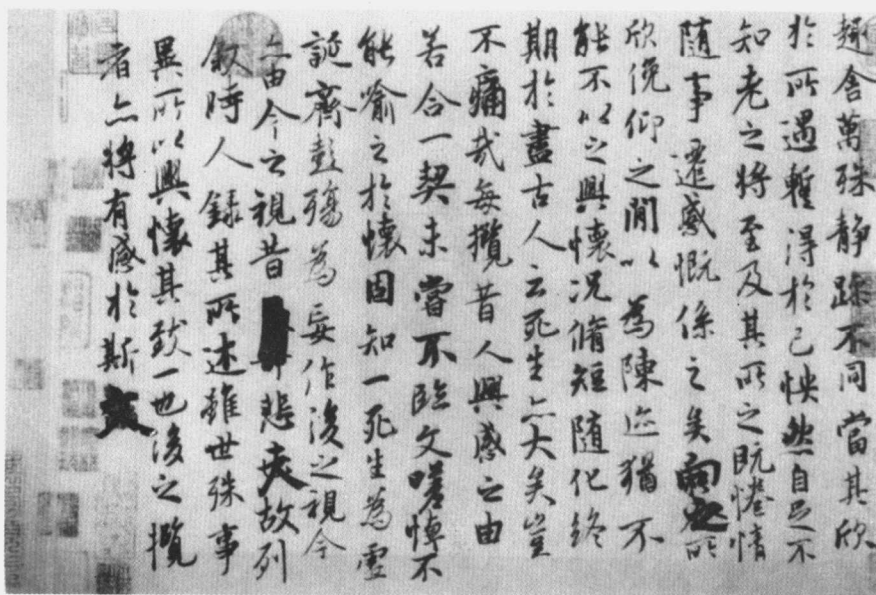 趣舍萬殊静躁不同當其欣
於所遇蹔得於己怏然自足不
知老之將至及其所之既惓情
随事遷感慨係之矣向之所
欣俛仰之閒以爲陳迹猶不
能不以之興懷况脩短随化終
期於盡古人云死生亦大矣豈
不痛哉每攬昔人興感之由
若合一契未嘗不臨文嗟悼不
能喻之於懷固知一死生爲虛
誕齊彭殤爲妄作後之視今
亦由今之視昔悲夫故列
叙時人録其所述雖世殊事
異所以興懷其致一也後之攬
者亦將有感於斯文